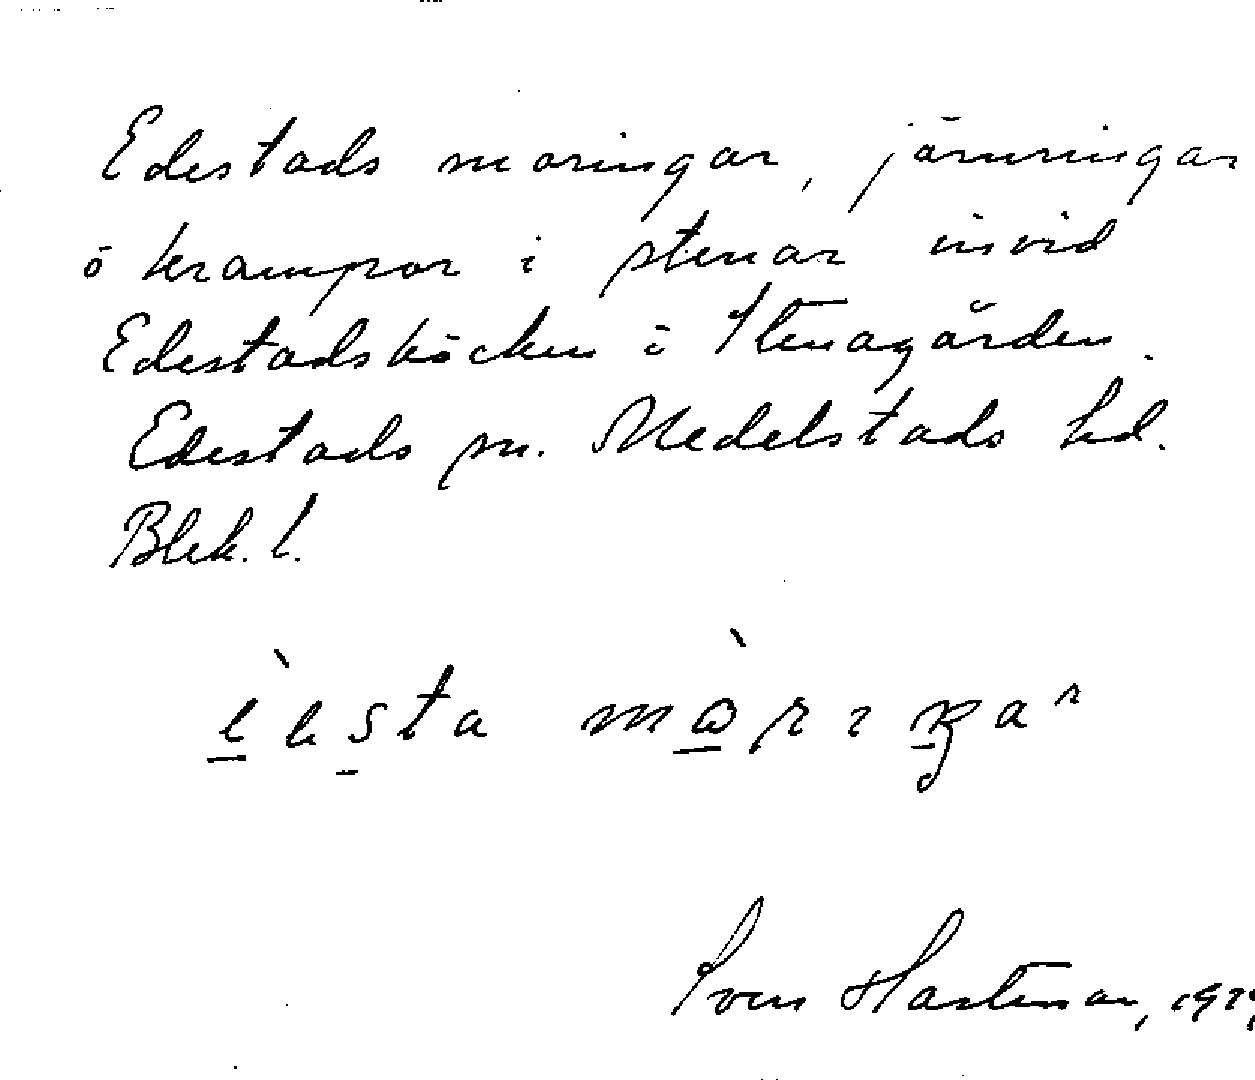 Edestads maringar, järnringar
o krampor i stenar invid
Edestadsbäcken i Stenagården.
Edestads sn. Medelstads hd.
Blek. l.
Sven Hartman,